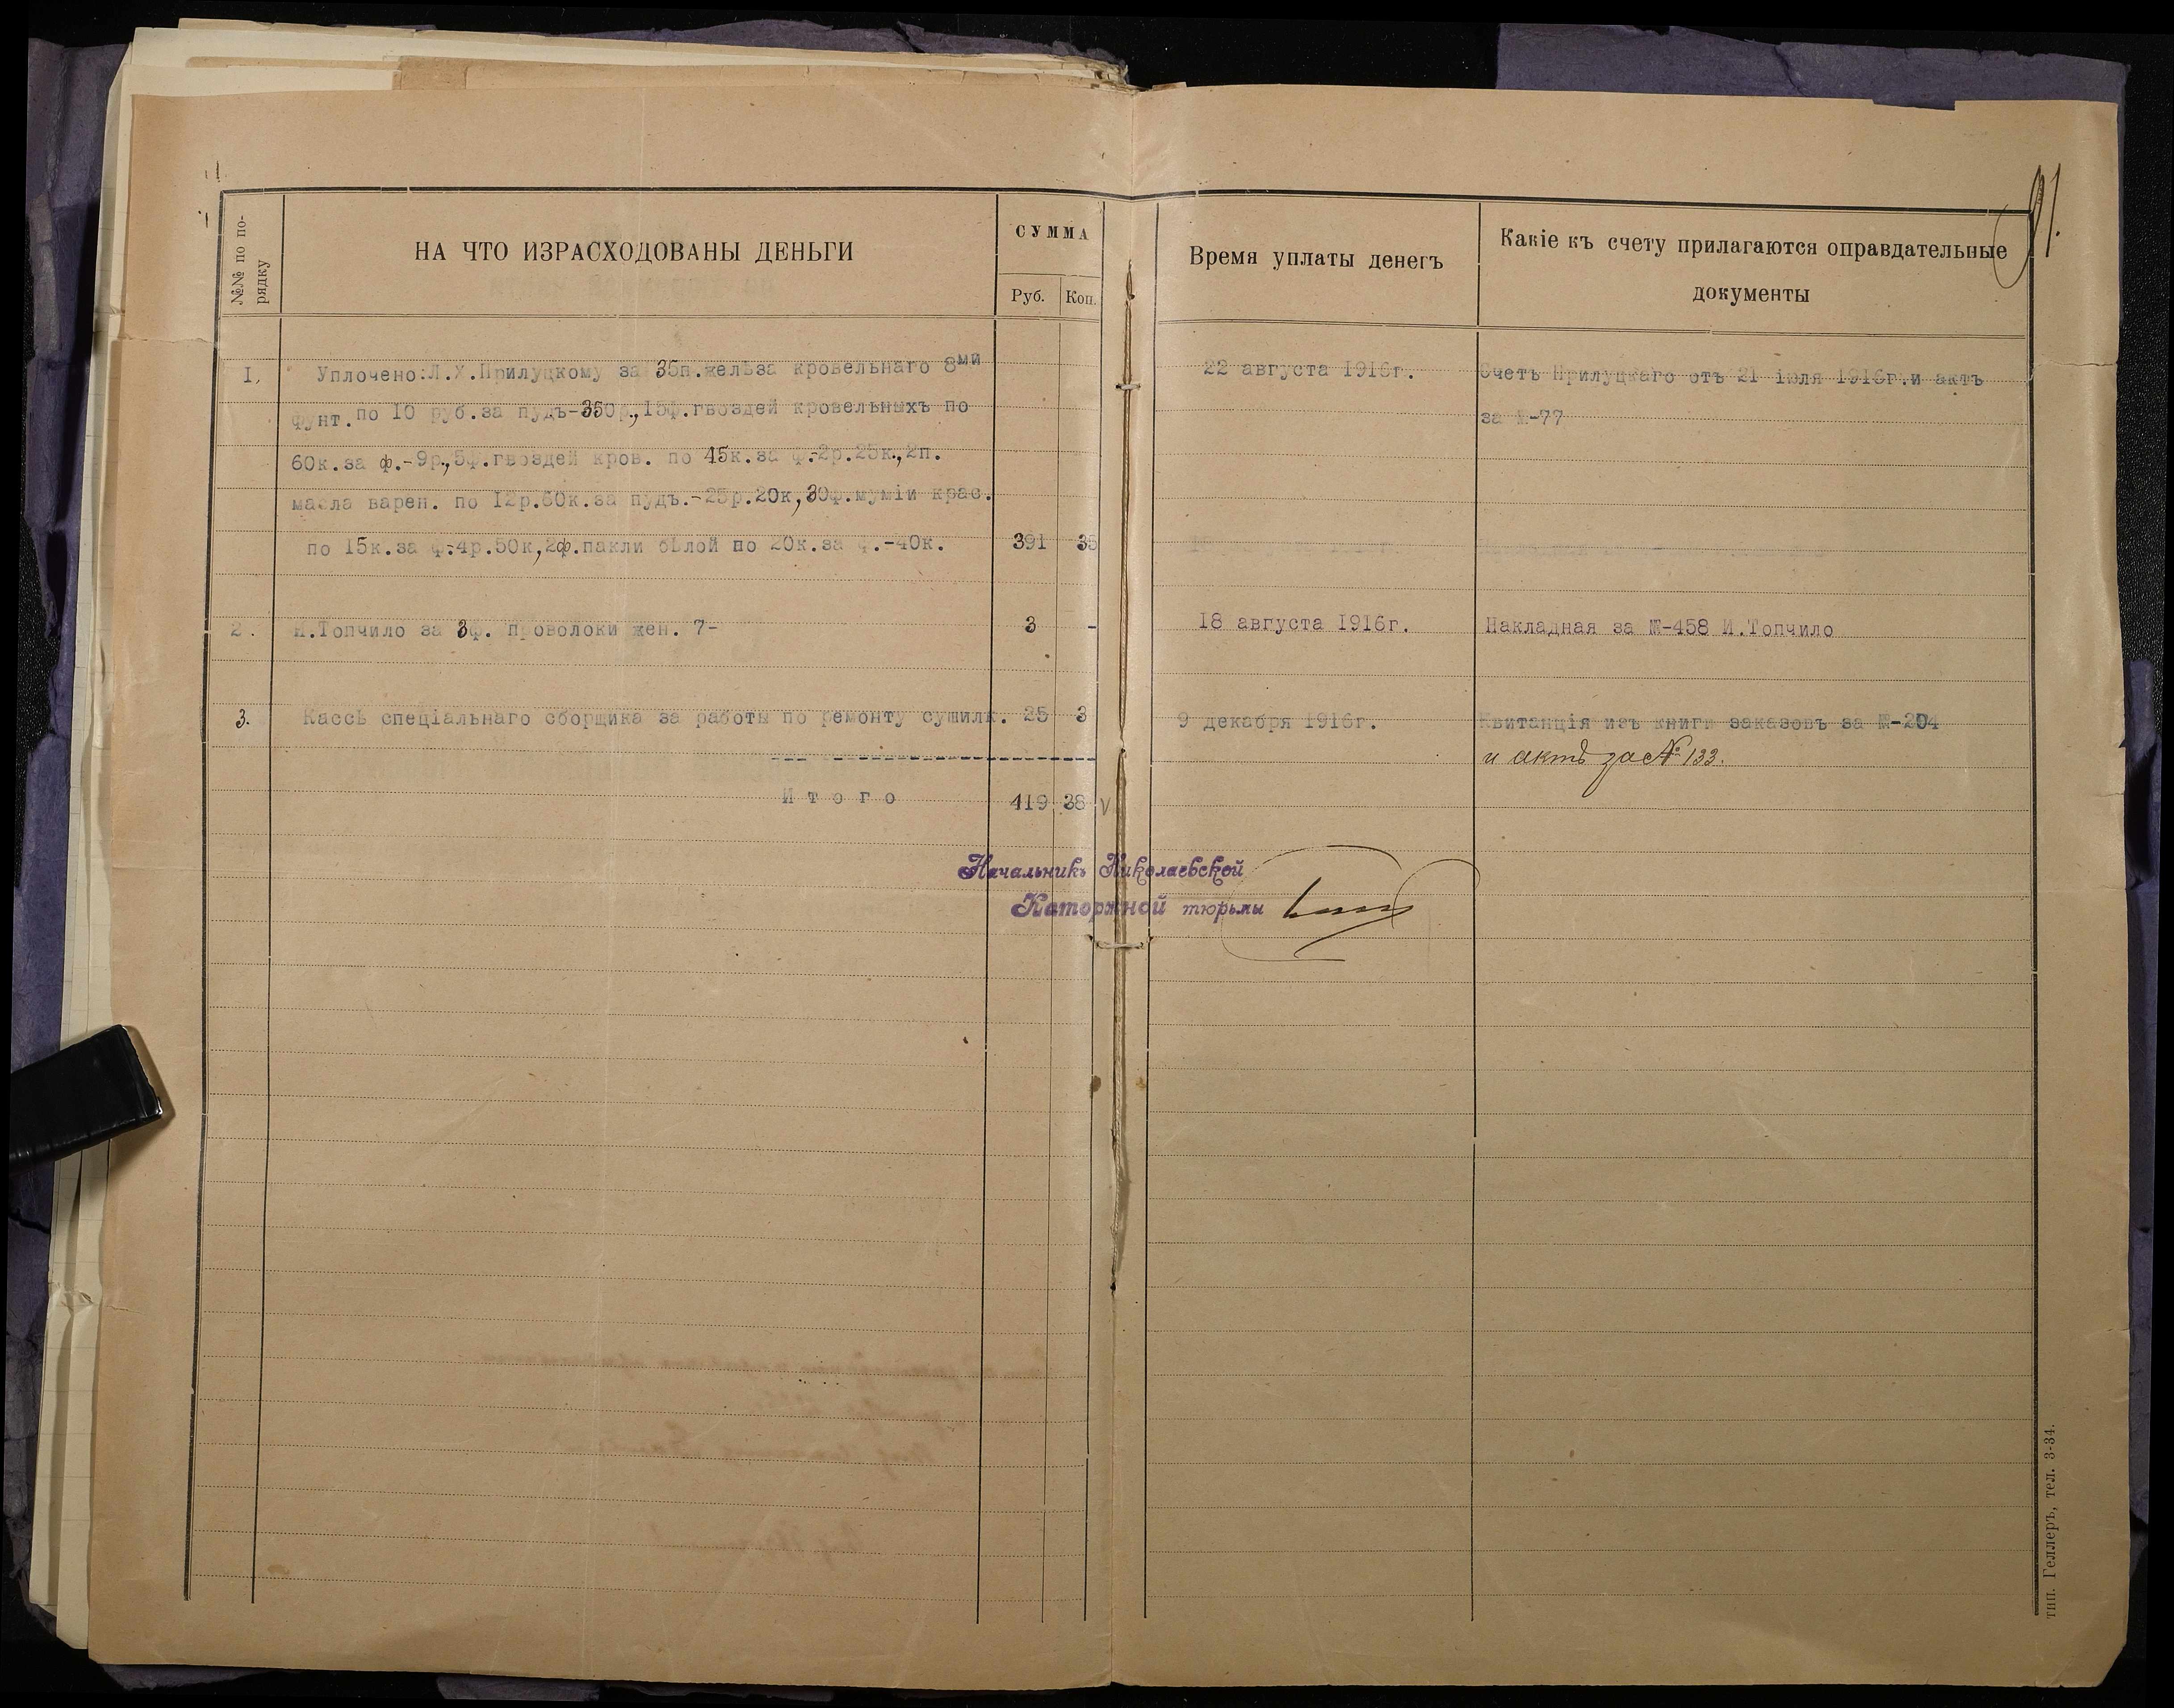 91.
№№ по по-
рядку
НА ЧТО ИЗРАСХОДОВАНЫ ДЕНЬГИ
СУММА
Руб.
Коп.
Время уплаты денегъ
Какіе къ счету прилагаются оправдательные
документы
I.
Уплочено:Л.Х.Прилуцкому за 35п.желѣза кровельнаго 8ми
фунт.по 10 руб.за пудъ-350р.,15ф.гвоздей кровельныхъ по
60к.за ф.-9р.,5ф.гвоздей кров. по 45к.за ф.-2р.25к.,2п.
масла варен. по 12р.60к.за пудъ.-25р.20к,30ф.муміи крас.
по 15к.за ф.-4р.50к,2ф.пакли бѣлой по 20к.за ф.-40к.
391 35
22 августа 1916г.
Счетъ Прилуцкаго отъ 21 іюля 1916г.и актъ
за №-77
2.
И.Топчило за 3ф. проволоки жен. 7-
3 -
18 августа 1916г.
Накладная за №-458 И.Топчило
3.
Кассѣ спеціальнаго сборщика за работы по ремонту сушилк.
25 3
9 декабря 1916г.
Квитанція изъ книги заказовъ за №-204
и актъ за № 133.
Итого
419 38
Начальникъ Николаевской
Каторжной тюрьмы
тип. Геллеръ, тел. 3-34.